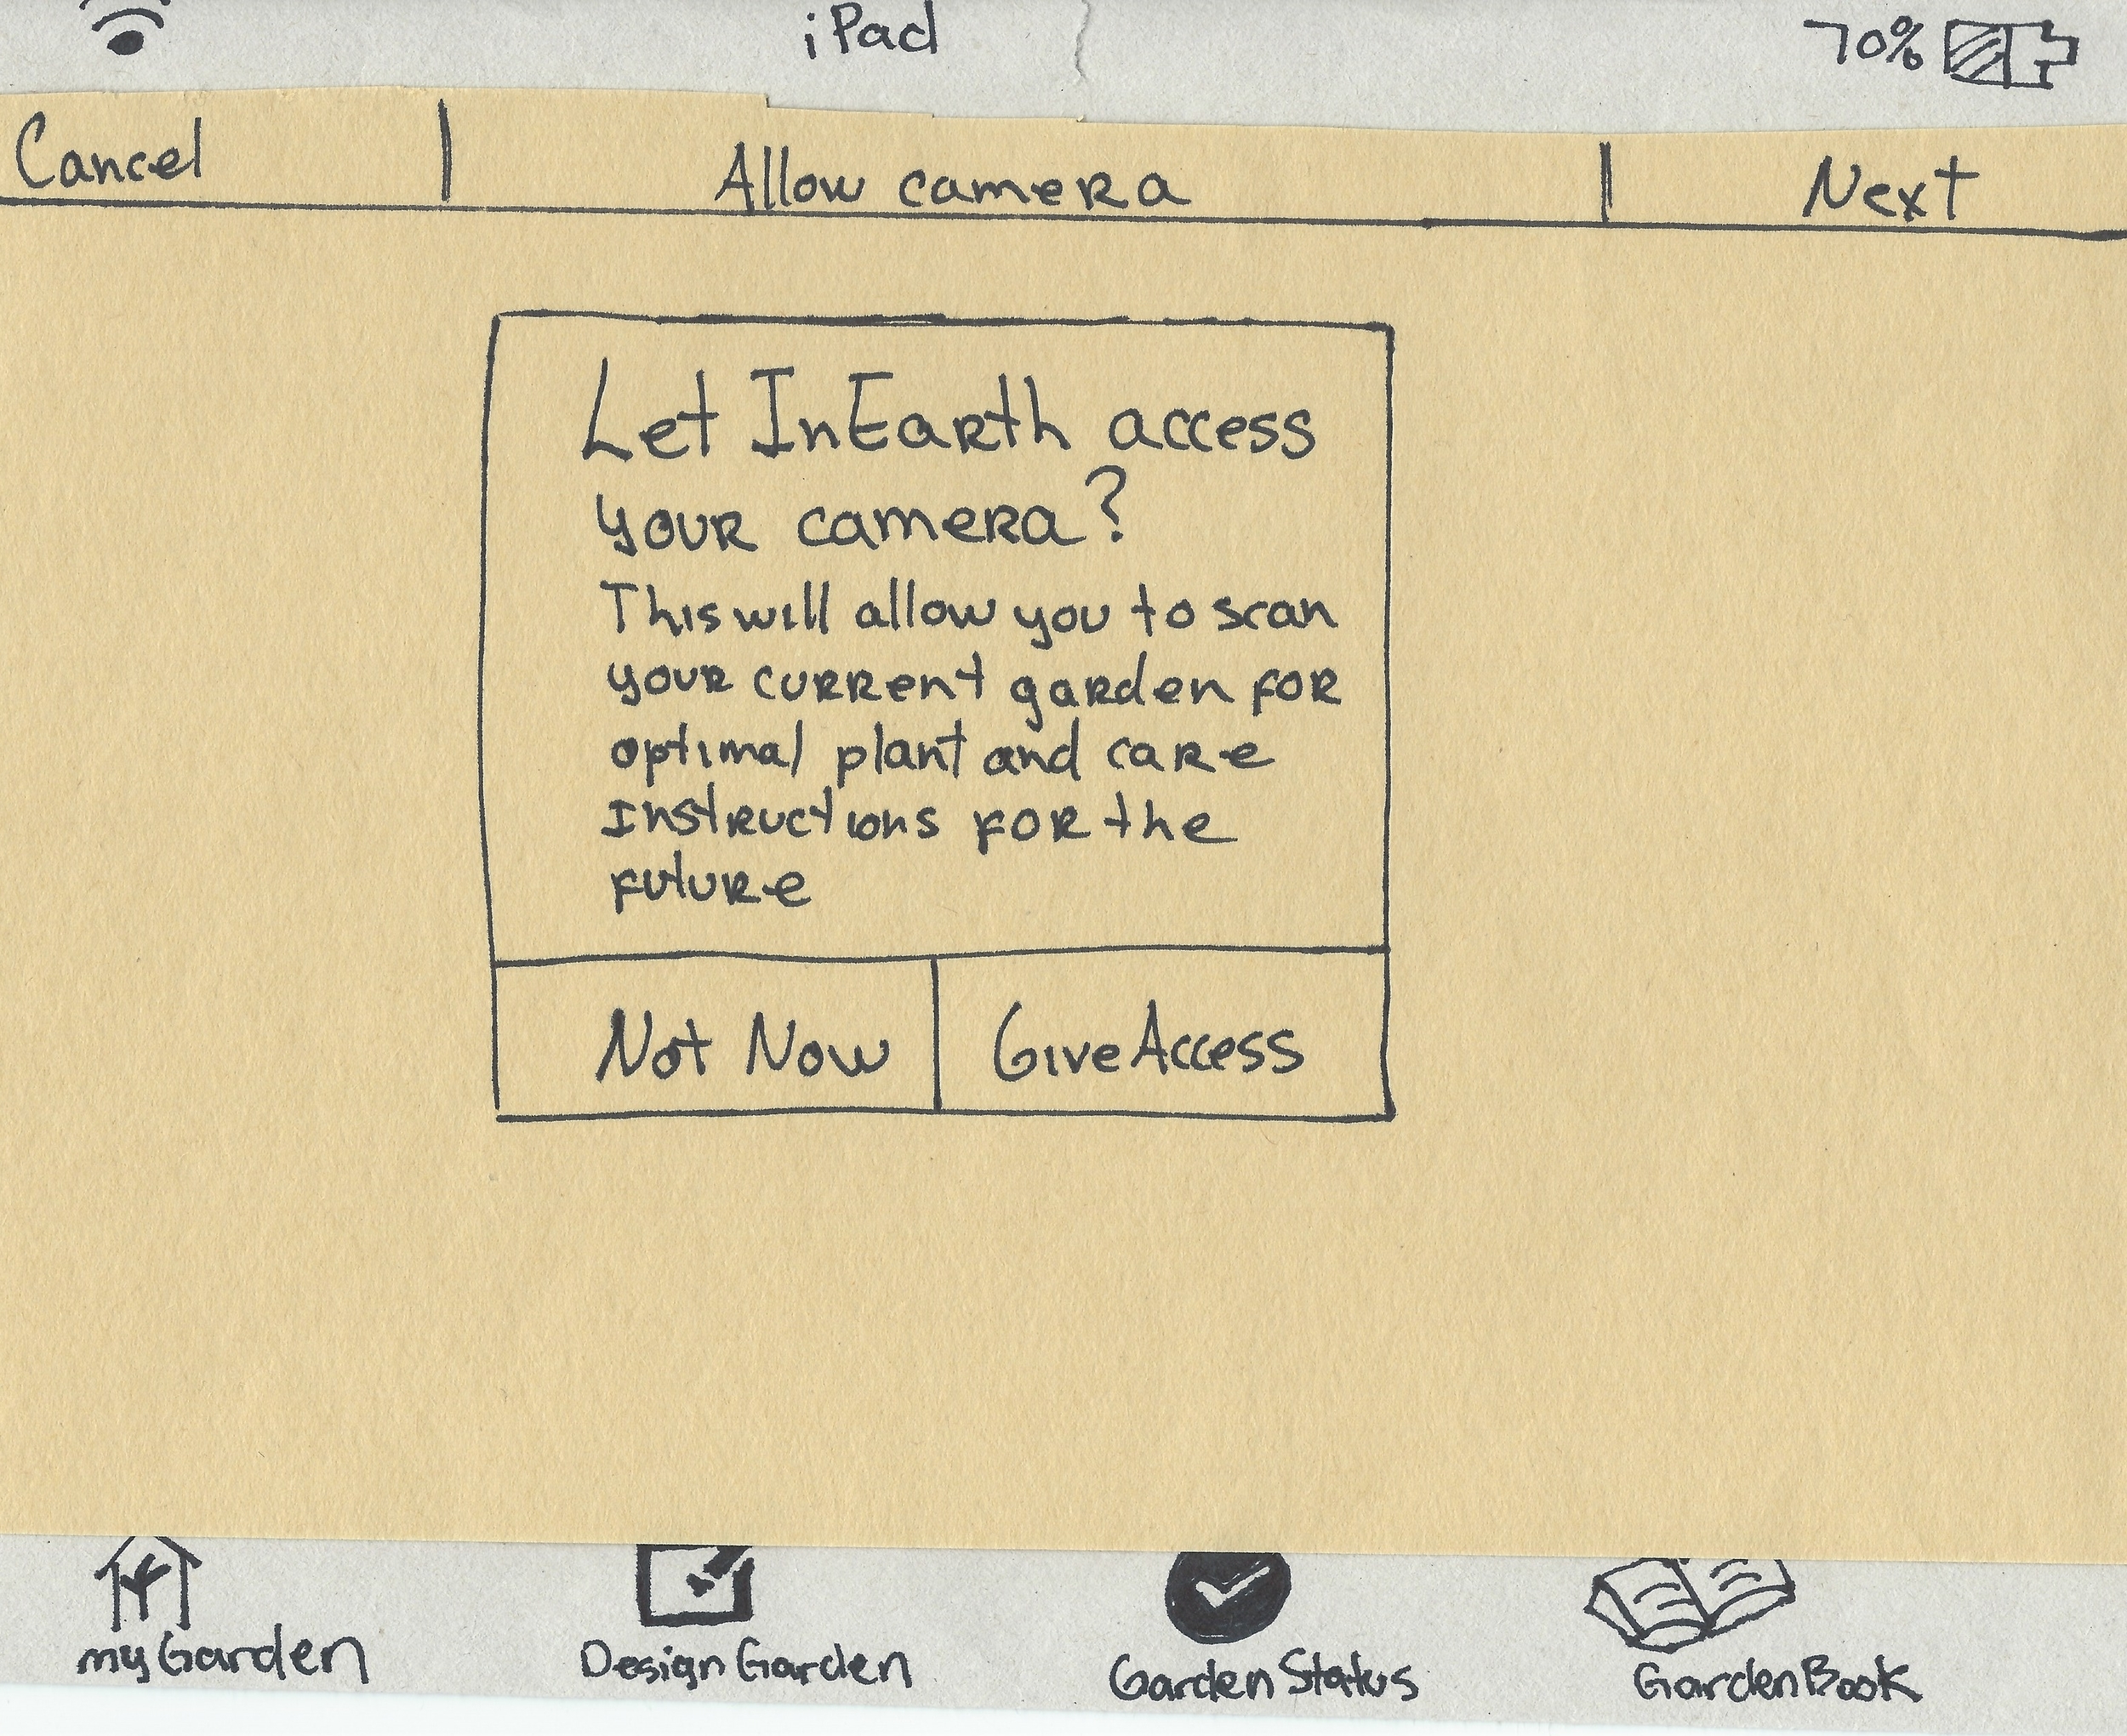 iPad
70%
Cancel
Allow camera
Next
Let InEarth access
your camera?
This will allow you to scan
your current garden for
optimal plant and care
instructions for the
future
Not Now
Give Access
myGarden
Design Garden
Garden Status
GardenBook